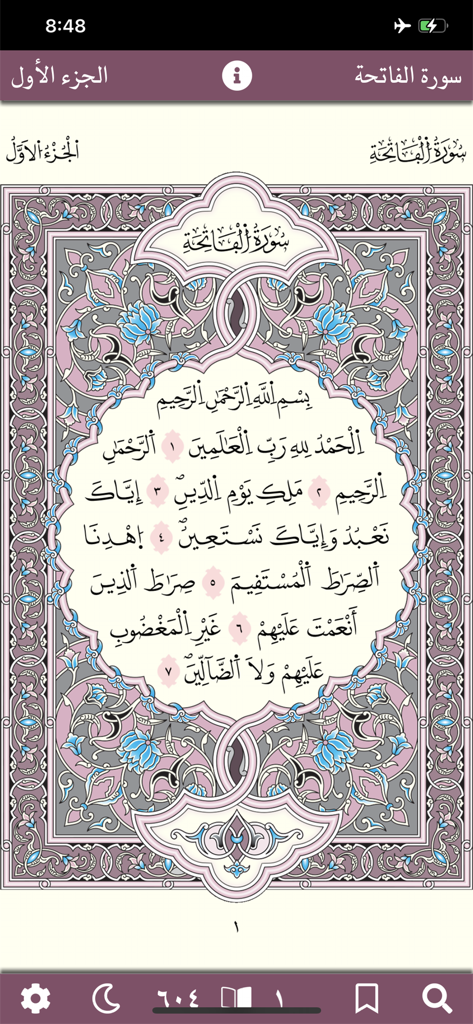 8:48
سورة الفاتحة
الجزء الأول
سُورَةُ الْفَاتِحَةِ
الْجُزْءُ الْأَوَّلُ
سُورَةُ الْفَاتِحَةِ
بِسْمِ اِللَّهِ اِلرَّحْمَٰنِ اِلرَّحِيمِ
اِلْحَمْدُ لِلهِ رَبِّ اِلْعَٰلَمِينَ ١ اَلرَّحْمَٰنِ
اِلرَّحِيمِ ٢ مَلِكِ يَوْمِ اِلدِّينِ ٣ إِيَّاكَ
نَعْبُدُ وَإِيَّاكَ نَسْتَعِينُ ٤ اِهْدِنَا
اَلصِّرَٰطَ اَلْمُسْتَقِيمَ ٥ صِرَٰطَ اَلذِينَ
أَنْعَمْتَ عَلَيْهِمْ ٦ غَيْرِ اِلْمَغْضُوبِ
عَلَيْهِمْ وَلَا اَلضَّآلِّينَ ٧
١
١
٦٠٤